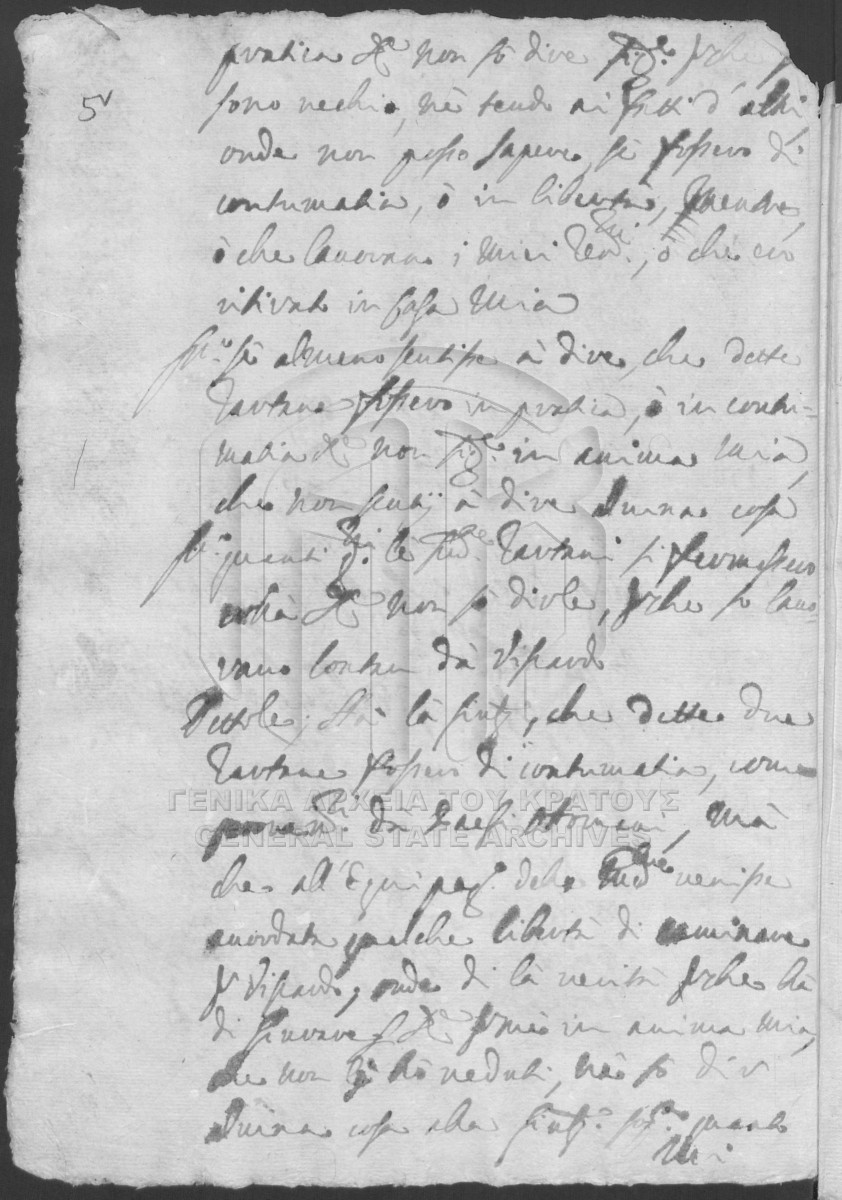 5v
pratica &c non sò dire Sig.re perche
sono vechio, nè tendo ai fatti d'altri,
onde non posso sapere, se fossero di
contumatia, ò in libertà,
ò che lavorano i miei Terr.ni, ò che
ritirato in Casa mia
se almeno sentisse à dire, che dette
Tartane fossero in pratica, ò in contu-
matia &c non Sig.r in anima mia,
che non sentij à dire alcuna cosa
quanti g.ni le sud.e Tartane si fermassero
colà &c non sò dirle, perche io lavo-
rano lontan dà Viscardo
Dettole, stà la Giust.a, che dette due
Tartane fossero di contumatia, come
dà Paesi Ottomani, mà
che all'Equipag.o delle sud.te venisse
accordata qualche libertà di caminare
per Viscardo, onde di là verità perche hà
di giurare &c in anima mia,
che non li hò veduti, nè sò dir
alcuna cosa alla Giust.a quanto
ΓΕΝΙΚΑ ΑΡΧΕΙΑ ΤΟΥ ΚΡΑΤΟΥΣ
GENERAL STATE ARCHIVES